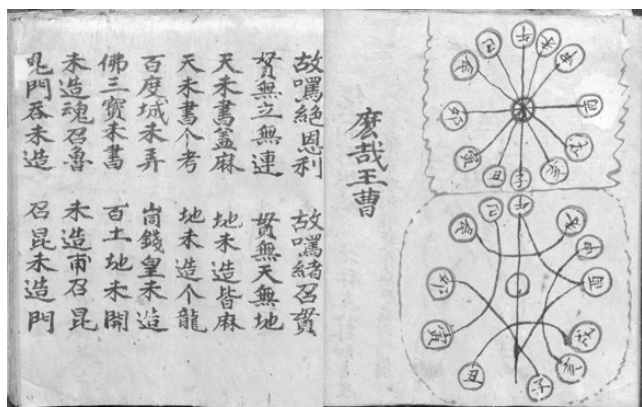 午
未
申
酉
戌
亥
子
丑
寅
卯
辰
巳
午
未
申
酉
戌
亥
子
丑
寅
卯
辰
巳
麽哉王曹
故嘱絶恩利 故嘱緒召貫
貫無之無連 貫無天無地
天未書盖麻 地未造皆麻
天未書个考 地未造个龍
百度城未弄 崗錢皇未造
佛三寳未書 百土地未開
未造魂召魯 未造甫召昆
門吞未造 召昆未造門